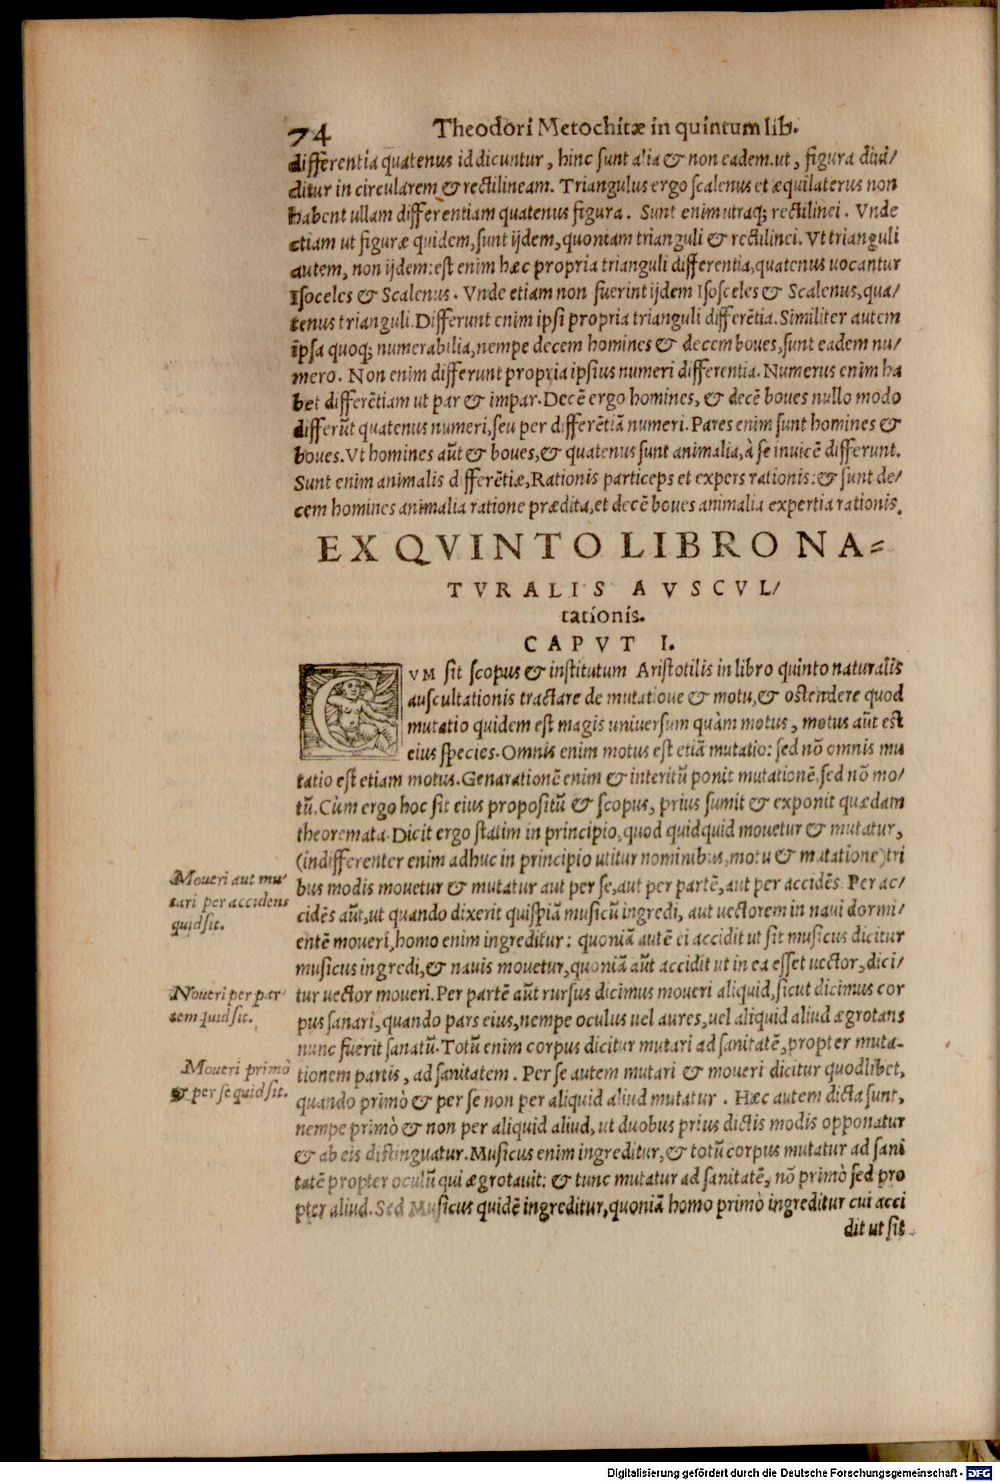 74 Theodori Metochitæ in quintum lib.
differentia quatenus id dicuntur, hinc sunt alia & non eadem. ut, figura diui/
ditur in circularem & rectilineam. Triangulus ergo scalenus et æquilaterus non
habent ullam differentiam quatenus figura. Sunt enim utraq; rectilinei. Vnde
etiam ut figuræ quidem, sunt ijdem, quoniam trianguli & rectilinei. Vt trianguli
autem, non ijdem: est enim hæc propria trianguli differentia, quatenus uocantur
Isoceles & Scalenus. Vnde etiam non fuerint ijdem Isosceles & Scalenus, qua/
tenus trianguli. Differunt enim ipsi propria trianguli differētia. Similiter autem
ipsa quoq; numerabilia, nempe decem homines & decem boues, sunt eadem nu/
mero. Non enim differunt propria ipsius numeri differentia. Numerus enim ha
bet differētiam ut par & impar. Decē ergo homines, & decē boues nullo modo
differūt quatenus numeri, seu per differētiā numeri. Pares enim sunt homines &
boues. Vt homines aūt & boues, & quatenus sunt animalia, à se inuicē differunt.
Sunt enim animalis differētiæ, Rationis particeps et expers rationis: & sunt de/
cem homines animalia ratione prædita, et decē boues animalia expertia rationis.
EX QVINTO LIBRO NA=
TVRALIS AVSCVL/
tationis.
CAPVT I.
CVM sit scopus & institutum Aristotilis in libro quinto naturalis
auscultationis tractare de mutatione & motu, & ostendere quod
mutatio quidem est magis uniuersum quàm motus, motus aūt est
eius species. Omnis enim motus est etiā mutatio: sed nō omnis mu
tatio est etiam motus. Genarationē enim & interitū ponit mutationē, sed nō mo/
tū. Cùm ergo hoc sit eius propositū & scopus, prius sumit & exponit quædam
theoremata. Dicit ergo statim in principio, quod quidquid mouetur & mutatur,
(indifferenter enim adhuc in principio utitur nominibus, motu & mutatione) tri
bus modis mouetur & mutatur aut per se, aut per partē, aut per accidēs. Per ac/
cidēs aūt, ut quando dixerit quispiā musicū ingredi, aut uectorem in naui dormi/
entē moueri, homo enim ingreditur: quoniā autē ei accidit ut sit musicus dicitur
musicus ingredi, & nauis mouetur, quoniā aūt accidit ut in ea esset uector, dici/
tur uector moueri. Per partē aūt rursus dicimus moueri aliquid, sicut dicimus cor
pus sanari, quando pars eius, nempe oculus uel aures, uel aliquid aliud ægrotans
nunc fuerit sanatū. Totū enim corpus dicitur mutari ad sanitatē, propter muta-
tionem partis, ad sanitatem. Per se autem mutari & moueri dicitur quodlibet,
quando primò & per se non per aliquid aliud mutatur. Hæc autem dicta sunt,
nempe primò & non per aliquid aliud, ut duobus prius dictis modis opponatur
& ab eis distinguatur. Musicus enim ingreditur, & totū corpus mutatur ad sani
tatē propter oculū qui ægrotauit: & tunc mutatur ad sanitatē, nō primò sed pro
pter aliud. Sed Musicus quidē ingreditur, quoniā homo primò ingreditur cui acci
dit ut sit
Moueri aut mu-
tari per accidens
quid sit.
Noueri per par-
tem quid sit.
Moueri primò
& per se quid sit.
Digitalisierung gefördert durch die Deutsche Forschungsgemeinschaft - DFG